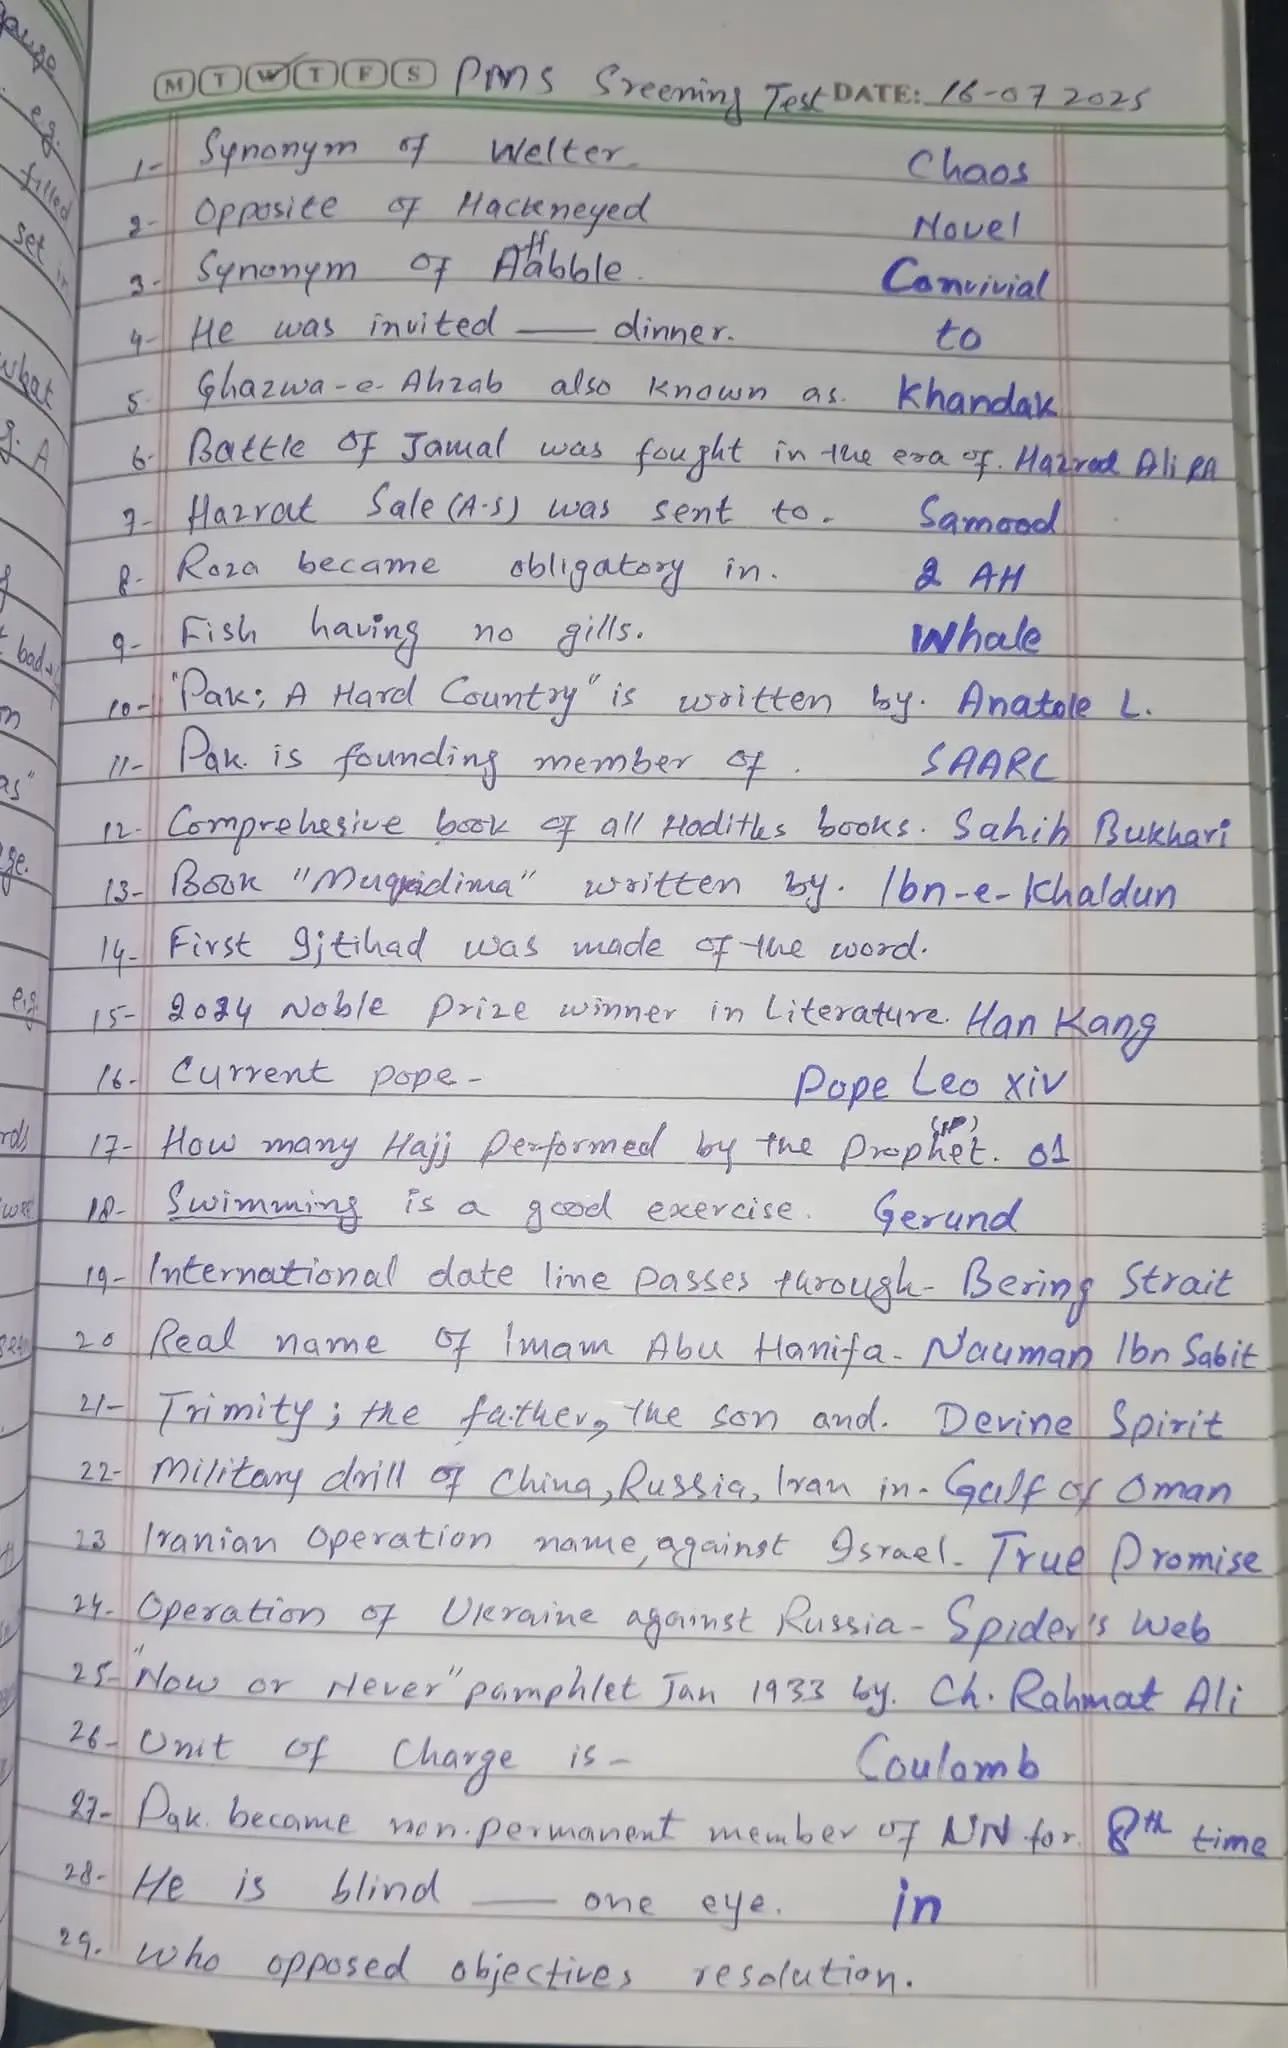 M T W T F S PMS Sreening Test DATE: 16-07 2025
1- Synonym of Welter. Chaos
2- Opposite of Hackneyed Novel
3- Synonym of Affabble. Convivial
4- He was invited —— dinner. to
5- Ghazwa-e-Ahzab also known as. Khandak
6- Battle of Jamal was fought in the era of. Hazrad Ali RA
7- Hazrat Sale (A.S) was sent to. Samood
8- Roza became obligatory in. 2 AH
9- Fish having no gills. Whale
10- "Pak; A Hard Country" is written by. Anatole L.
11- Pak. is founding member of. SAARC
12- Comprehesive book of all Hadiths books. Sahih Bukhari
13- Book "Muqadima" written by. Ibn-e-Khaldun
14- First Ijtihad was made of the word.
15- 2024 Noble Prize winner in Literature. Han Kang
16- Current pope- Pope Leo XIV
17- How many Hajj Performed by the Prophet. 01
18- Swimming is a good exercise. Gerund
19- International date line passes through- Bering Strait
20 Real name of Imam Abu Hanifa- Nauman Ibn Sabit
21- Trimity; the father, the son and. Devine Spirit
22- Military drill of China, Russia, Iran in- Gulf of Oman
23 Iranian Operation name, against Israel- True Promise
24- Operation of Ukraine against Russia- Spider's Web
25- "Now or Never" pamphlet Jan 1933 by. Ch. Rahmat Ali
26- Unit of Charge is- Coulomb
27- Pak. became non-permanent member of UN for. 8th time
28- He is blind —— one eye. in
29. Who opposed objectives resolution.